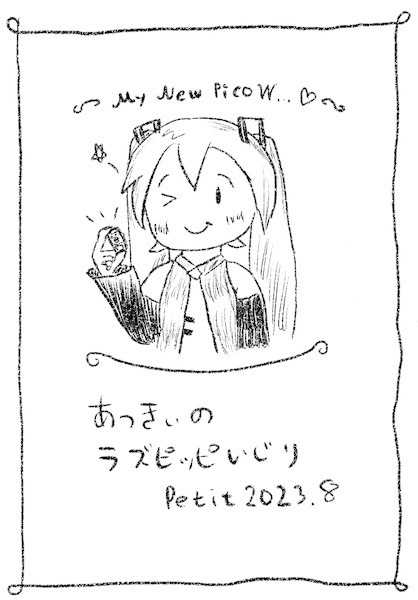 My New Pico W...♡
あっきぃの
ラズピッピいじり
Petit 2023.8